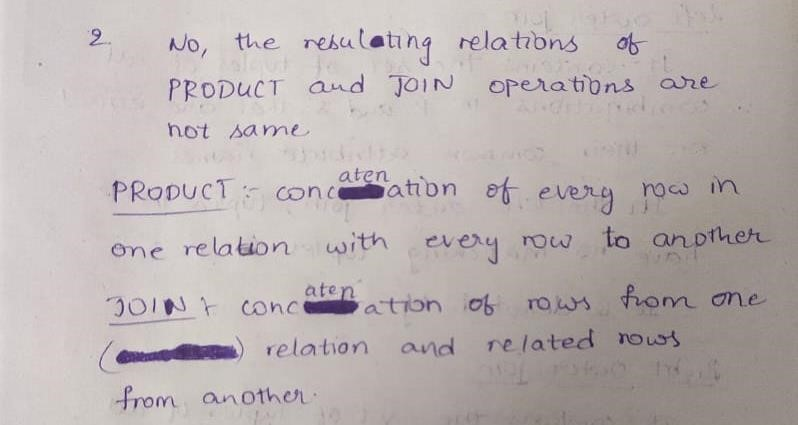 2. No, the resulating relations of
PRODUCT and JOIN operations are
not same
PRODUCT :- concatenation of every row in
one relation with every row to another
JOIN :- concatenation of rows from one
( ) relation and related rows
from another.